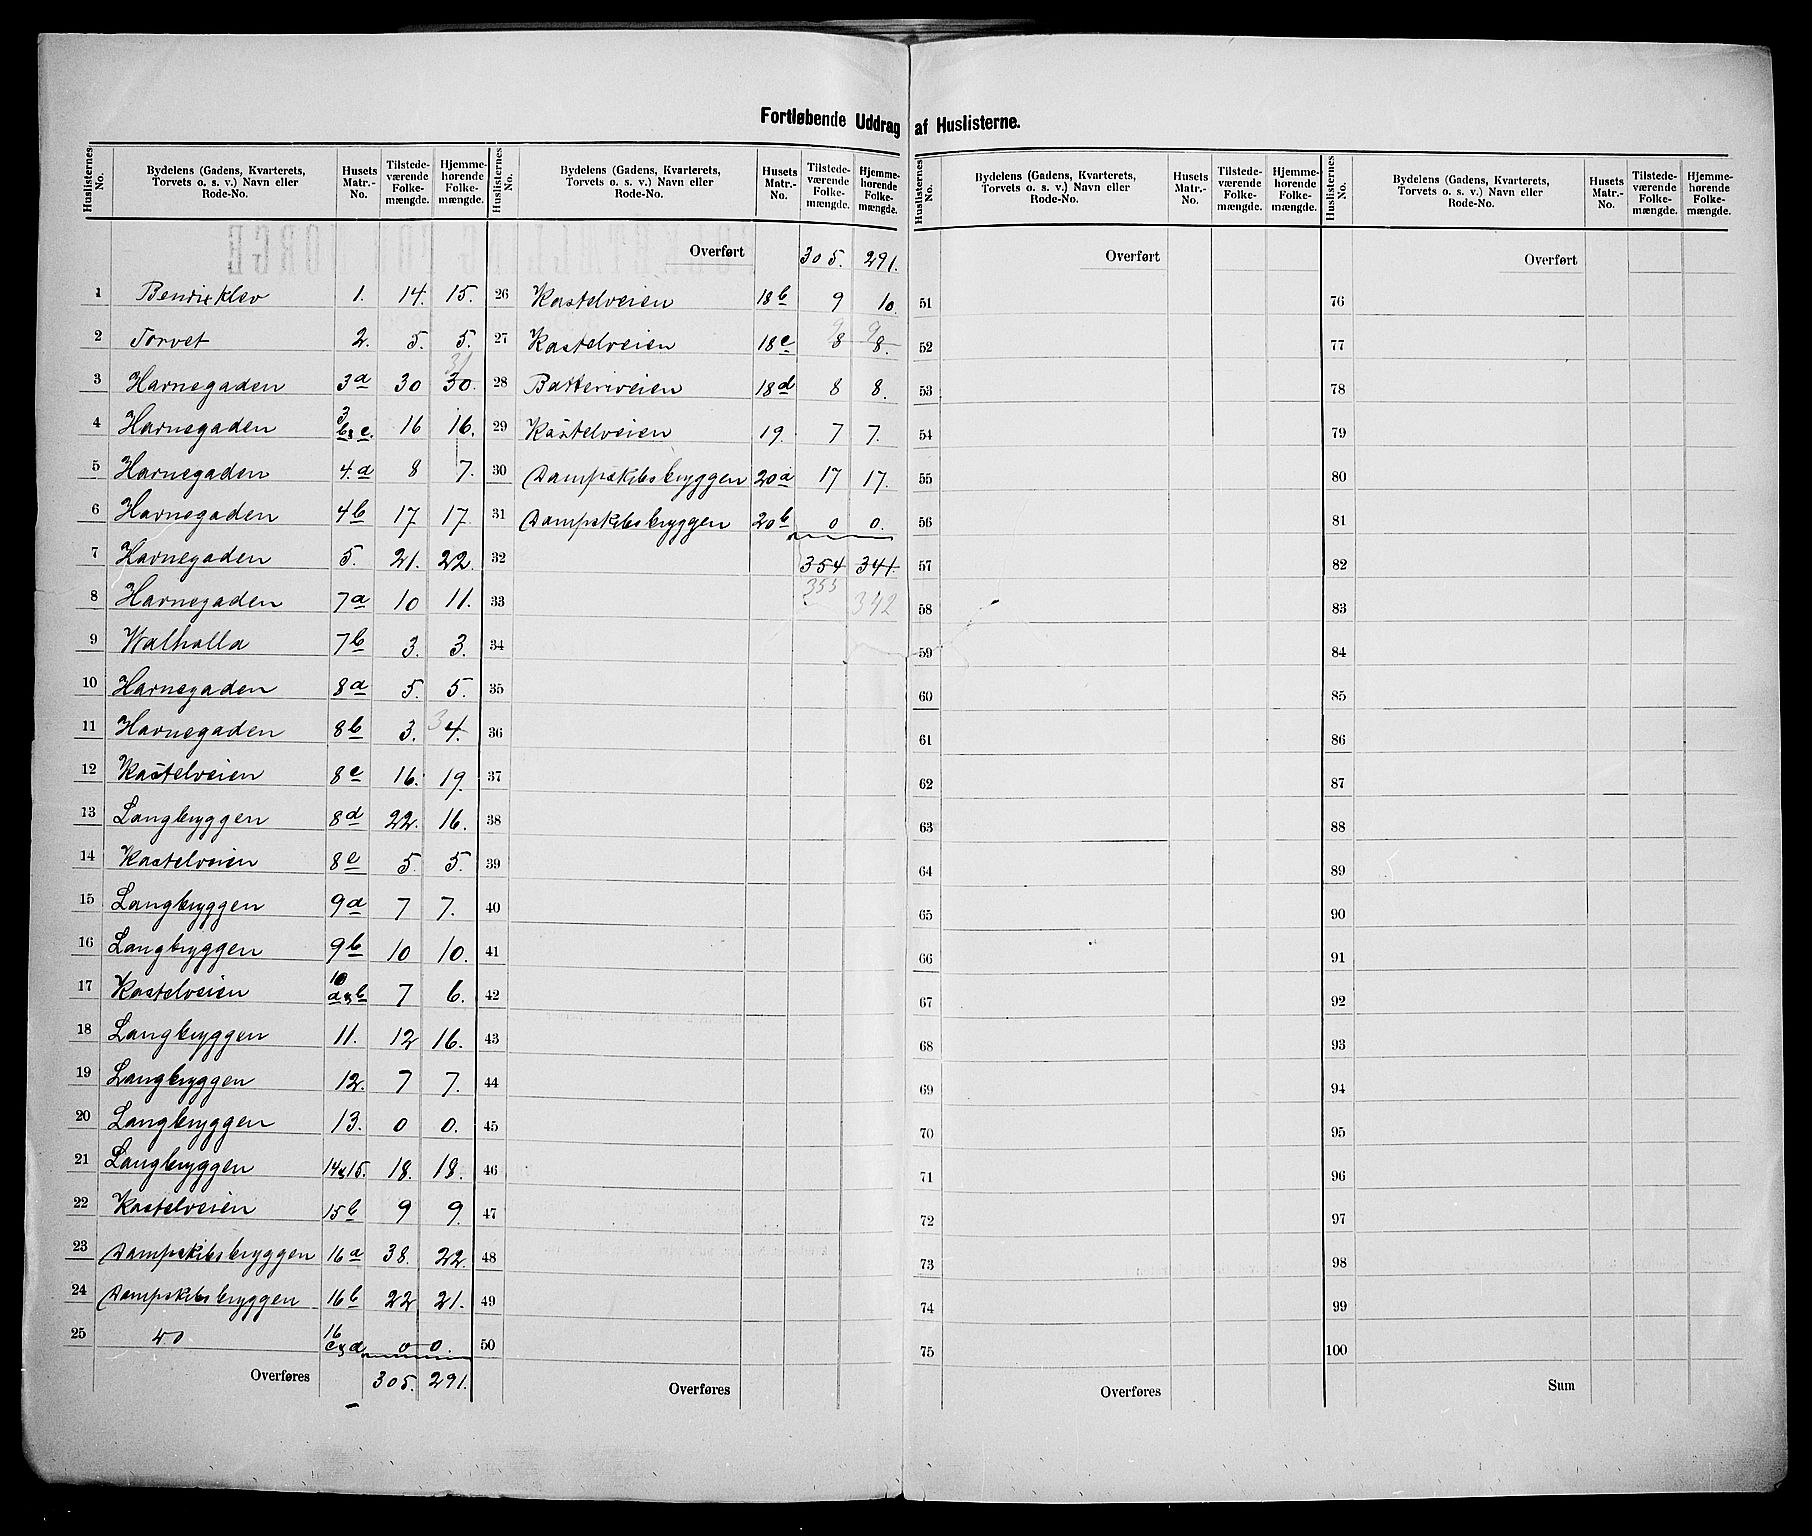 Fortløbende Uddrag af Huslisterne.
Huslisternes No. | Bydelens (Gadens, Kvarterets, Torvets o. s. v.) Navn eller Rode-No. | Husets Matr.-No. | Tilstedeværende Folkemængde. | Hjemmehørende Folkemængde.
1 Bendixklev 1. 14. 15.
2 Torvet 2. 5. 5.
3 Havnegaden 3a 30 30. 31
4 Havnegaden 3 b & c. 16 16.
5 Havnegaden 4.a 8 7.
6 Havnegaden 4b 17 17.
7 Havnegaden 5. 21. 22.
8 Havnegaden 7a 10 11.
9 Walhalla 7b 3. 3.
10 Havnegaden 8a 5. 5.
11 Havnegaden 8b 3. 3 4.
12 Kastelveien 8c 16. 19.
13 Langbryggen 8d 22. 16.
14 Kastelveien 8e 5. 5.
15 Langbryggen 9a 7 7.
16 Langbryggen 9b 10 10.
17 Kastelveien 10 a & b 7 6.
18 Langbryggen 11. 12 16.
19 Langbryggen 12. 7 7.
20 Langbryggen 13. 0 0.
21 Langbryggen 14 & 15. 18. 18.
22 Kastelveien 15b 9 9.
23 Dampskibsbryggen 16a 38. 22.
24 Dampskibsbryggen 16b 22 21.
25 do 16 c & d 0 0.
Overføres 305. 291.
Huslisternes No. | Bydelens (Gadens, Kvarterets, Torvets o. s. v.) Navn eller Rode-No. | Husets Matr.-No. | Tilstedeværende Folkemængde. | Hjemmehørende Folkemængde.
Overført 305. 291.
26 Kastelveien 18b 9 10.
27 Kastelveien 18c 9 8 9 8.
28 Batteriveien 18d 8 8.
29 Kastelveien 19. 7 7.
30 Dampskibsbryggen 20a 17 17.
31 Dampskibsbryggen 20b 0 0.
32 354 341.
33 355 342
34
35
36
37
38
39
40
41
42
43
44
45
46
47
48
49
50
Overføres
Huslisternes No. | Bydelens (Gadens, Kvarterets, Torvets o. s. v.) Navn eller Rode-No. | Husets Matr.-No. | Tilstedeværende Folkemængde. | Hjemmehørende Folkemængde.
Overført
51
52
53
54
55
56
57
58
59
60
61
62
63
64
65
66
67
68
69
70
71
72
73
74
75
Overføres
Huslisternes No. | Bydelens (Gadens, Kvarterets, Torvets o. s. v.) Navn eller Rode-No. | Husets Matr.-No. | Tilstedeværende Folkemængde. | Hjemmehørende Folkemængde.
Overført
76
77
78
79
80
81
82
83
84
85
86
87
88
89
90
91
92
93
94
95
96
97
98
99
100
Sum